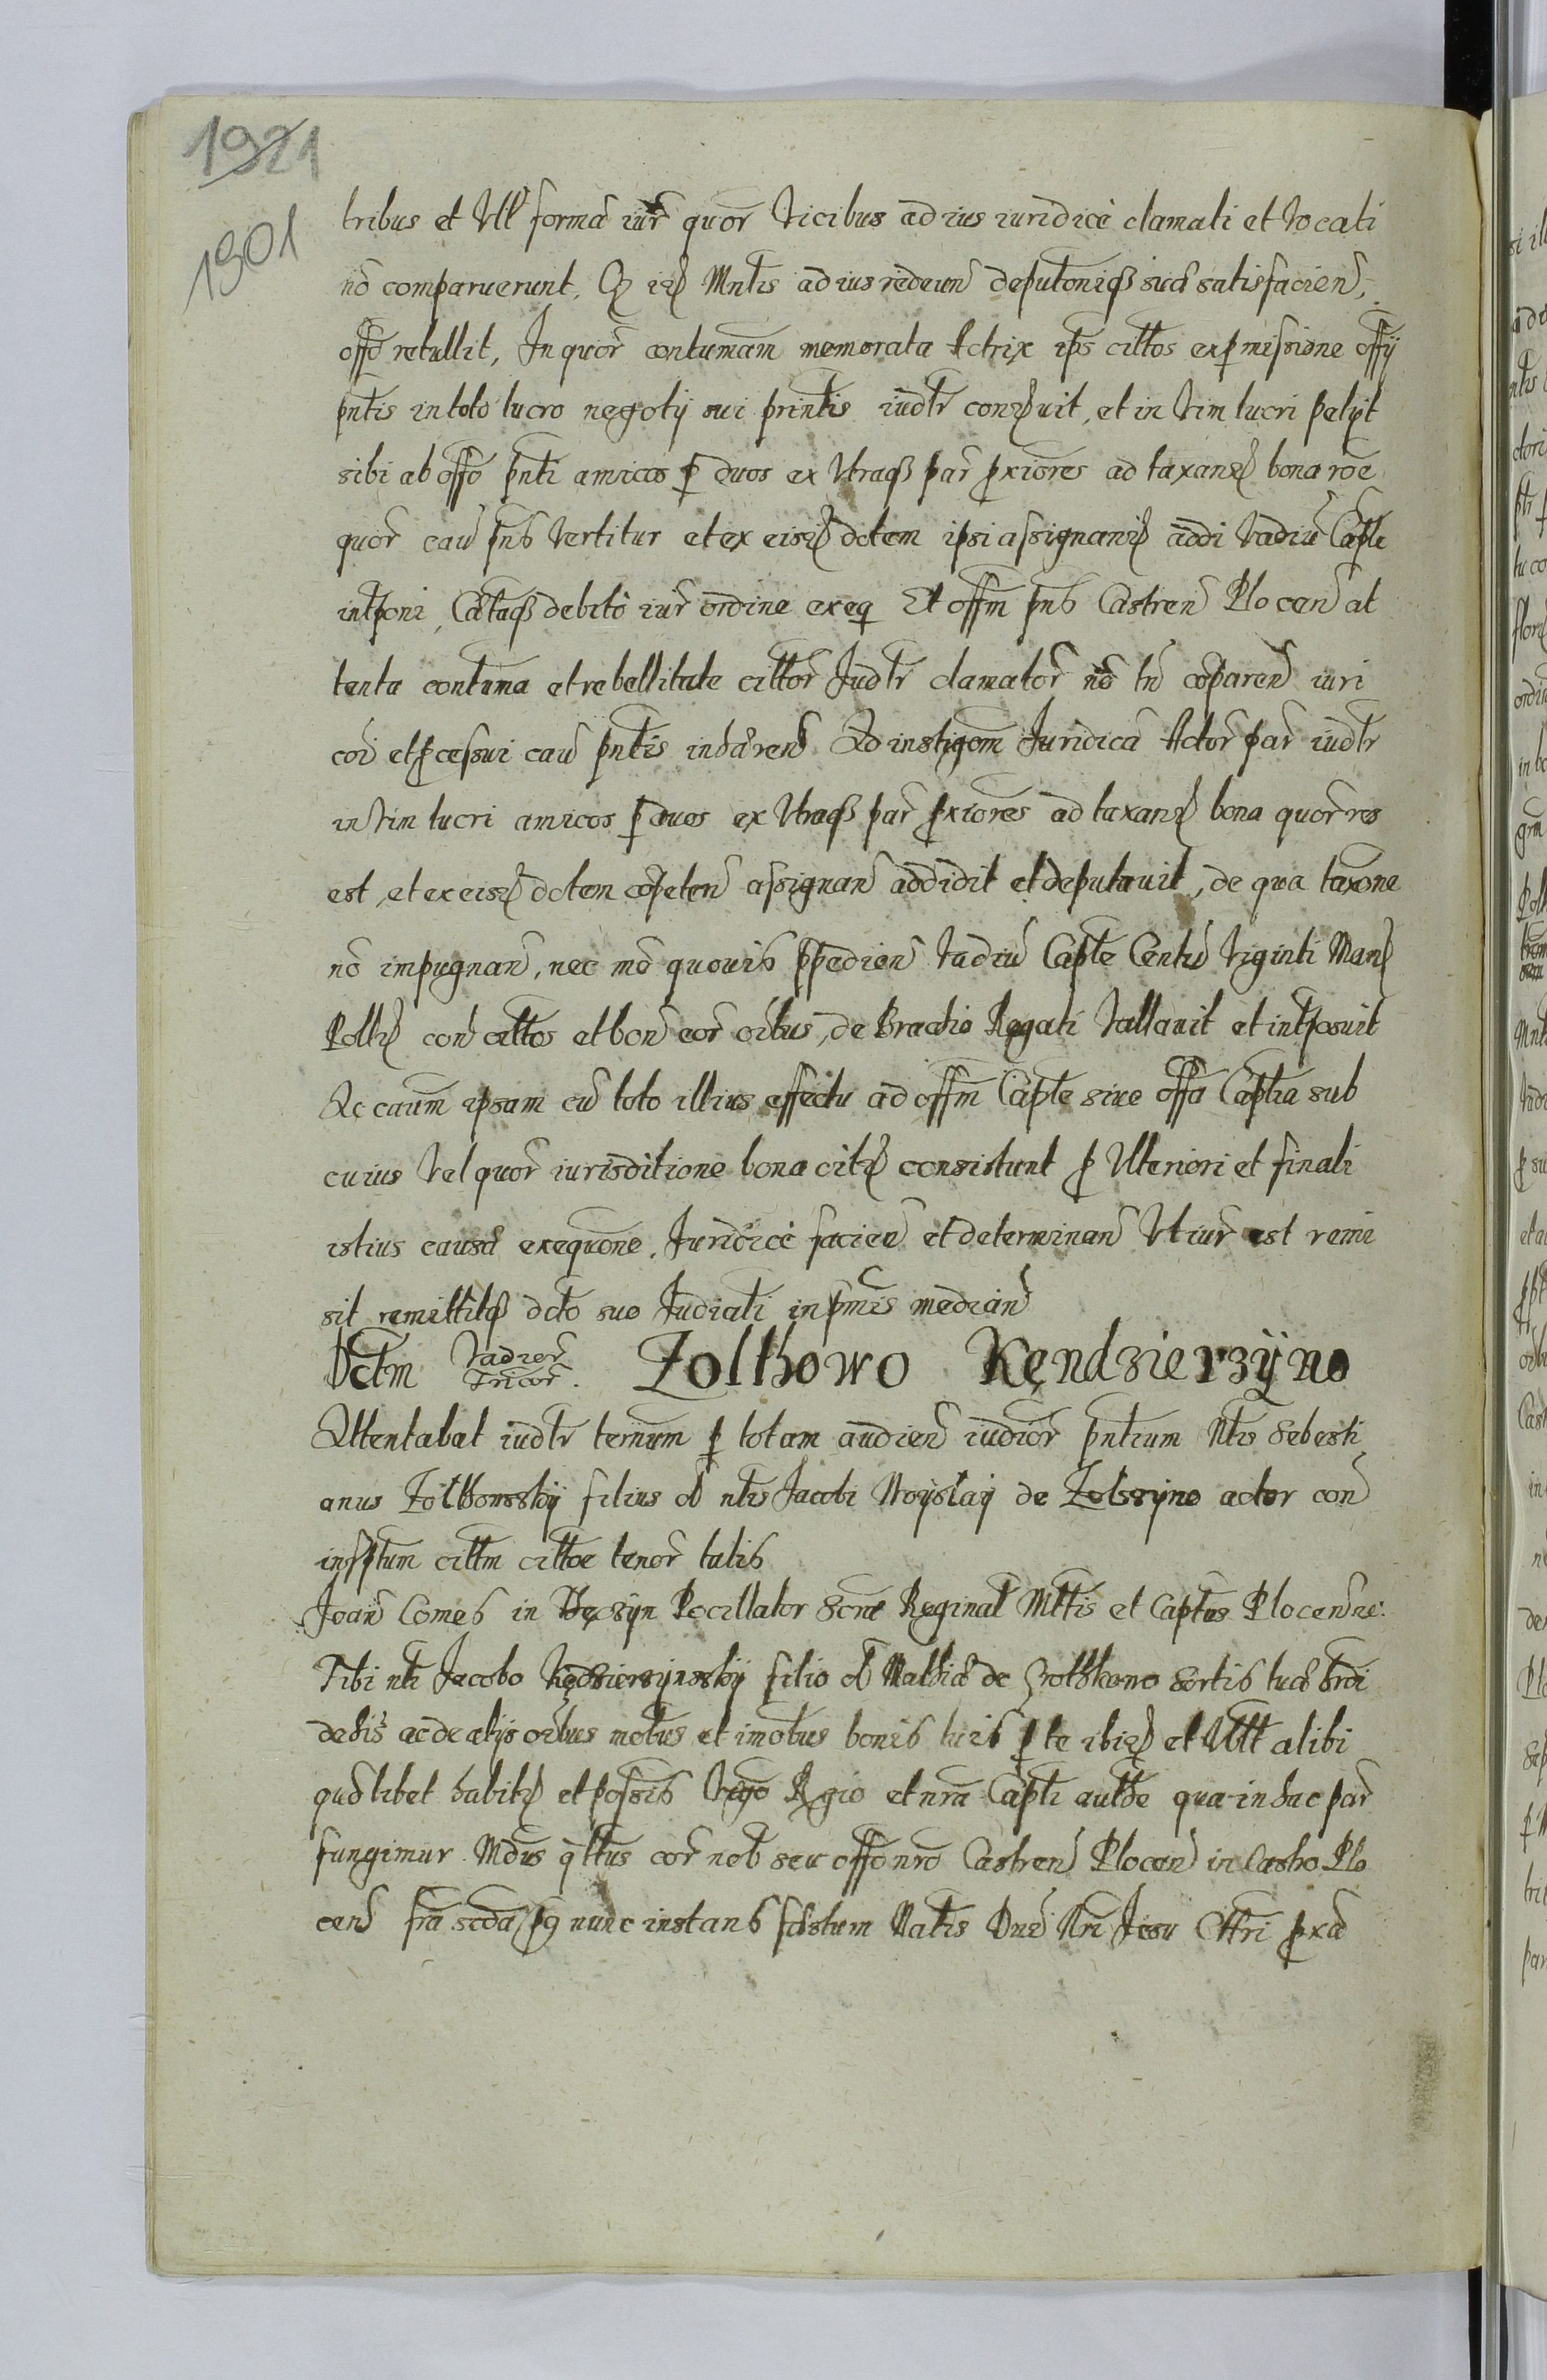 1921
1901
tribus et Ult forma iur quor Vicibus ad ius iuridicè clamati et Vocati
nō comparuerunt. Mntis ad ius redeun satisfacien,
offō retullit, In quor contumam memorata Actrix ips cittos ex pmissione offÿ
pntis in toto lucro negotÿ sui printis iudtr et in Vim lucri petÿt
sibi ab offo pnti amicos p duos ex Utraq par pxiores ad taxan bona rōe
quor cau pns Vertitur et ex eis dotem ipsi assignan addi Vadiū Capte
intponi, debitō iur ordine exeq Et offm pns Castren Plocen at
tenta contuma et rebellitate cittor Judtr clamator nō tn cōparen iuri
cōi et pcessui cau pntis inhæren Ad instigom Juridicā Actor par iudtr
in Vim lucri amicos p duos ex Utraq par pxiores ad taxan bona quor res
est, et ex eis dotem cōpeten assignan addidit et deputauit, de qua taxone
nō impugnan, nec mō quouis ppedien Vadiū Capte Centū Viginti Man
Pol con cittos et bon eor oibus, de Brachio Regali Vallauit et intposuit
Ac caum ipsam cū toto illius effectu ad offm Capte siue offa Captia sub
cuius Vel quor iurisditione bona cit consistunt p Ulteriori et finali
istius causæ exequone, Juridicè facien et determinan Ut iur est remi
sit remittitq dcto suo Judiciali in pmis median
Dctm Vadior Tricor. Zolkowo Kęndzierzÿno
Attentabat iudtr termum p totam audien iudior pntium Nts Sebesti
anus Zolkowskÿ filius olī ntis Jacobi Woÿslaÿ de actor con
insptum cittm cittoe tenor talis
Joan Comes in Tęczÿn Pocillator Reginal Mttis et Captus Plocen ne:
Tibi nti Jacobo Kędzierzÿnskÿ filio olī Mathiæ de sortis tuæ
ac de alÿs oibus motus et imotus bonis tuis p te ibi et Ultt alibi
qudlibet habit et possis Rgio et nrā Capti autthe qua in hac par
fungimur. Mdus qttus cor nob seu offō nrō Castren Plocen in Castro Plo
cen fra scda pq nunc instans fæstum Natis Dni Nri Jesu pxā